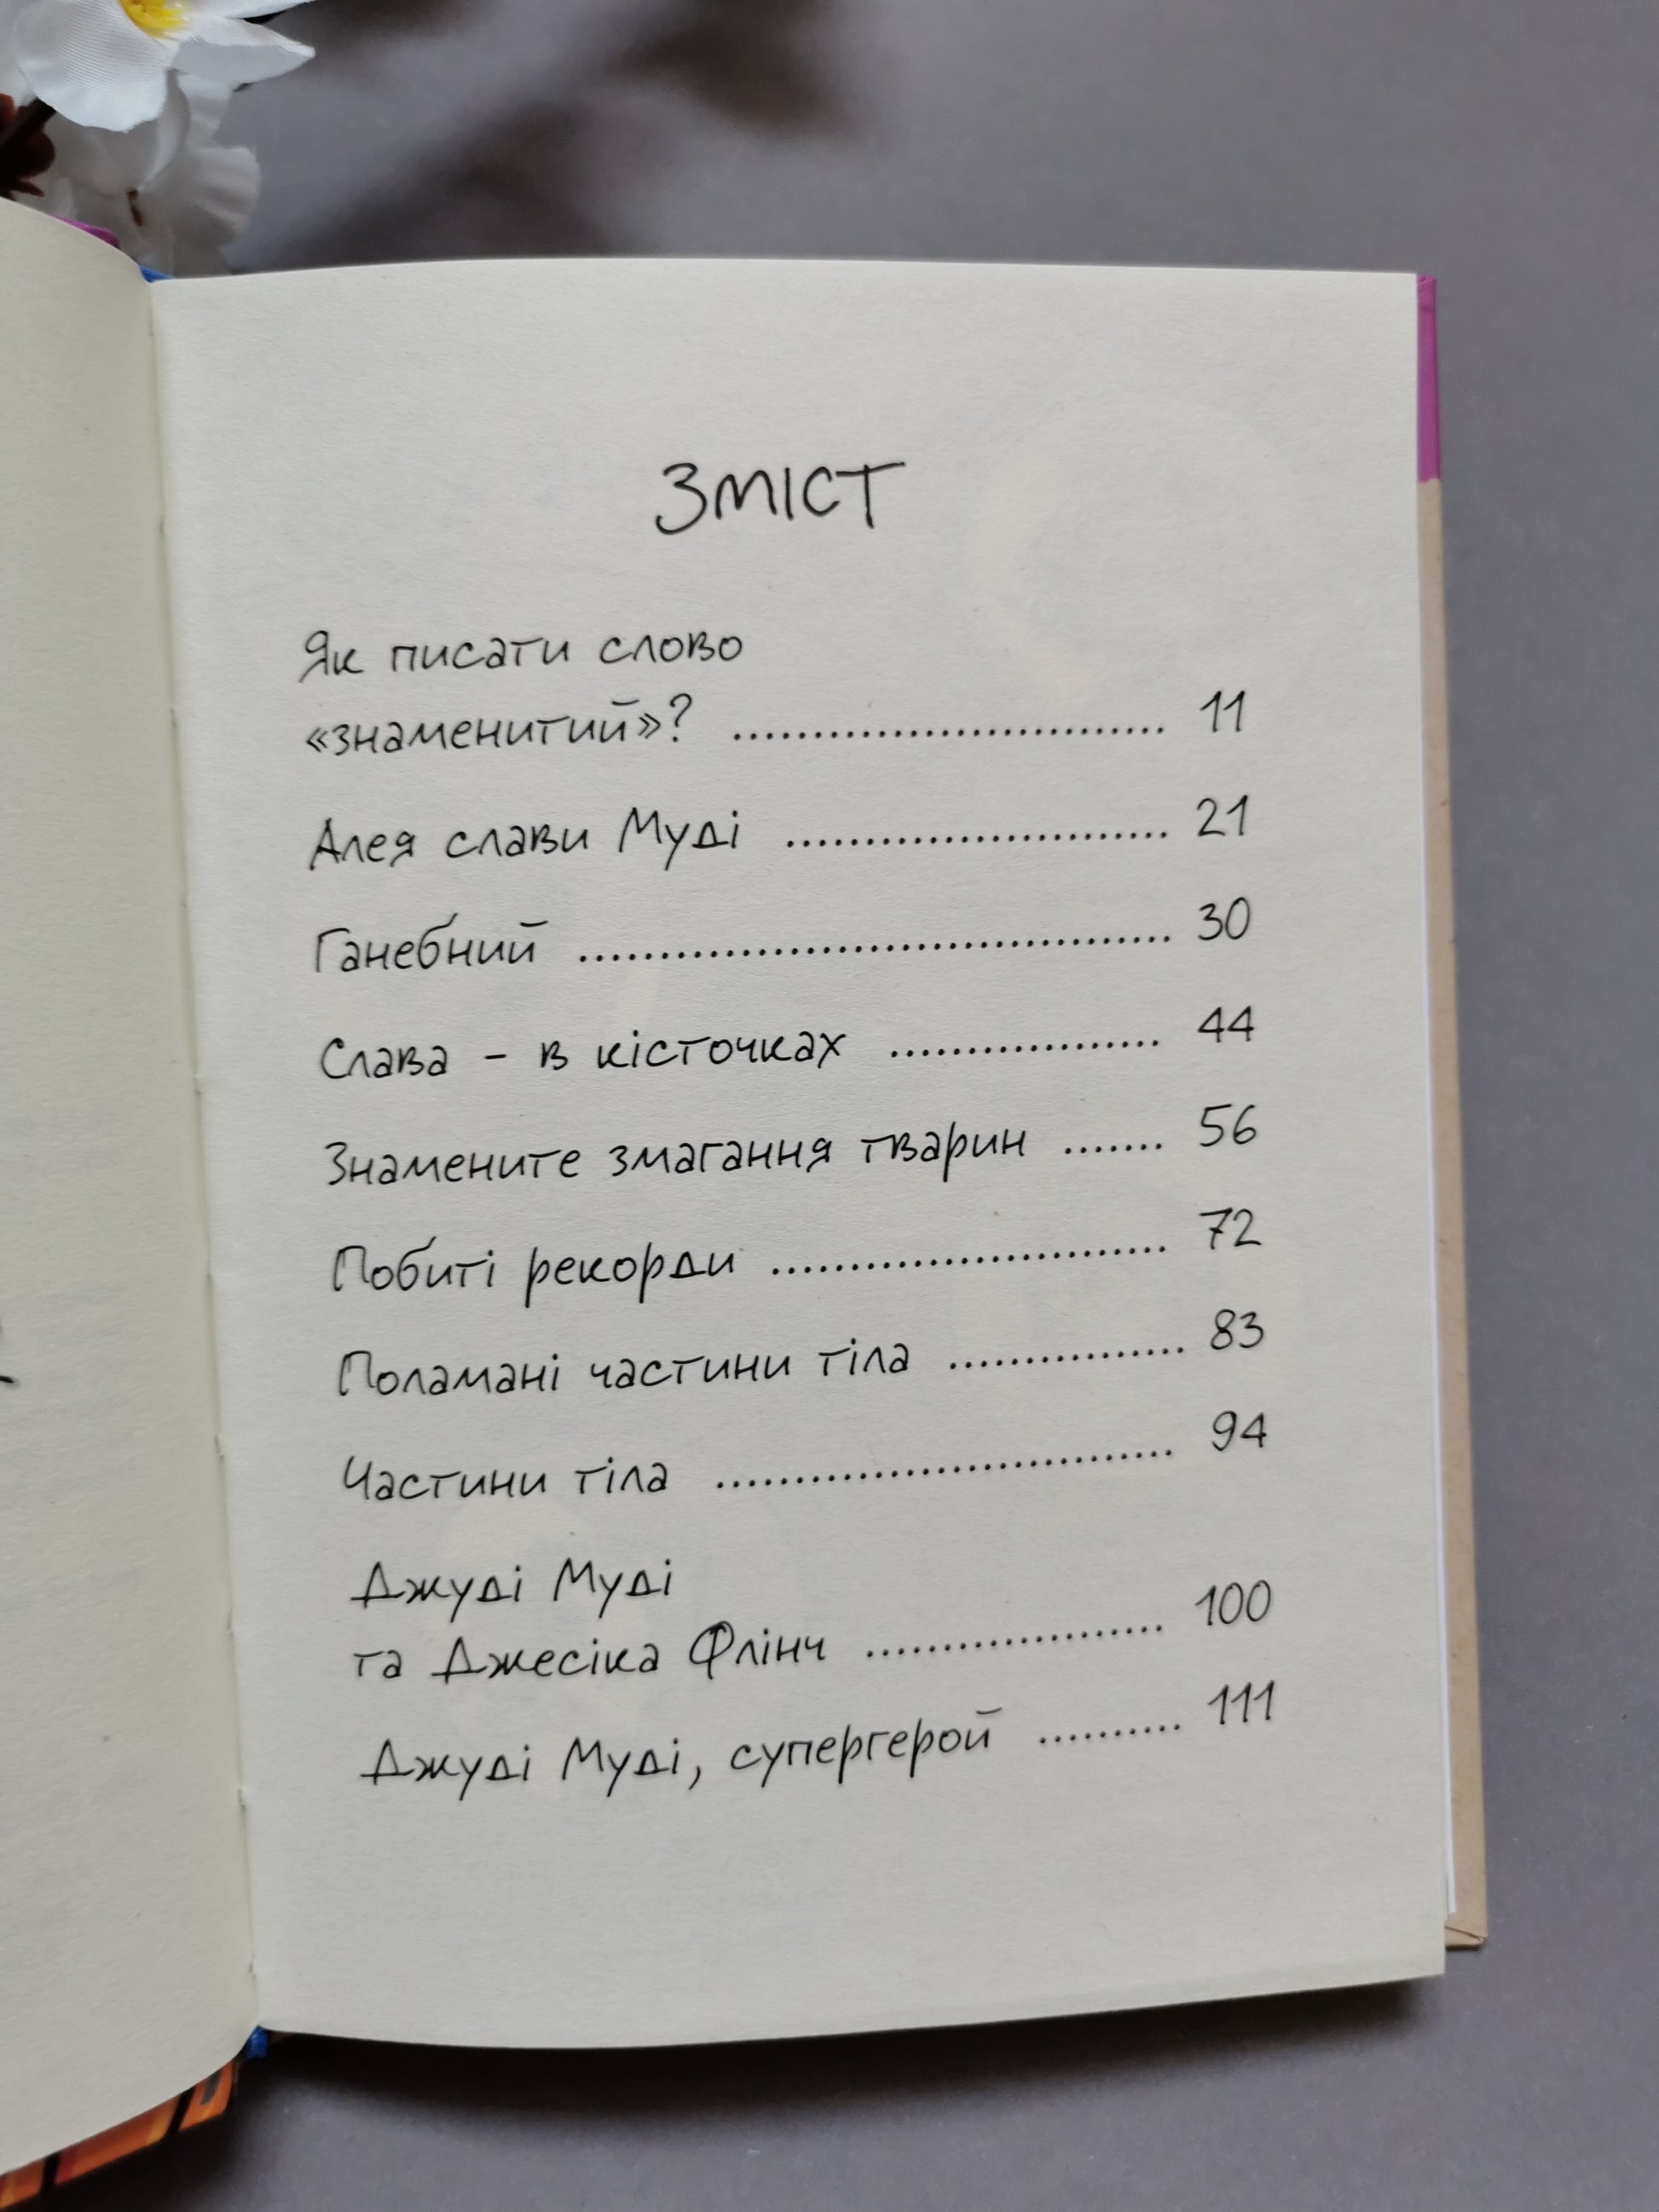 ЗМІСТ
Як писати слово
«знаменитий»? ........................... 11
Алея слави Муді ........................ 21
Ганебний ..................................... 30
Слава – в кісточках ................. 44
Знамените змагання тварин ....... 56
Побиті рекорди ......................... 72
Поламані частини тіла ............... 83
Частини тіла ............................. 94
Джуді Муді
та Джесіка Флінч ................... 100
Джуді Муді, супергерой .......... 111